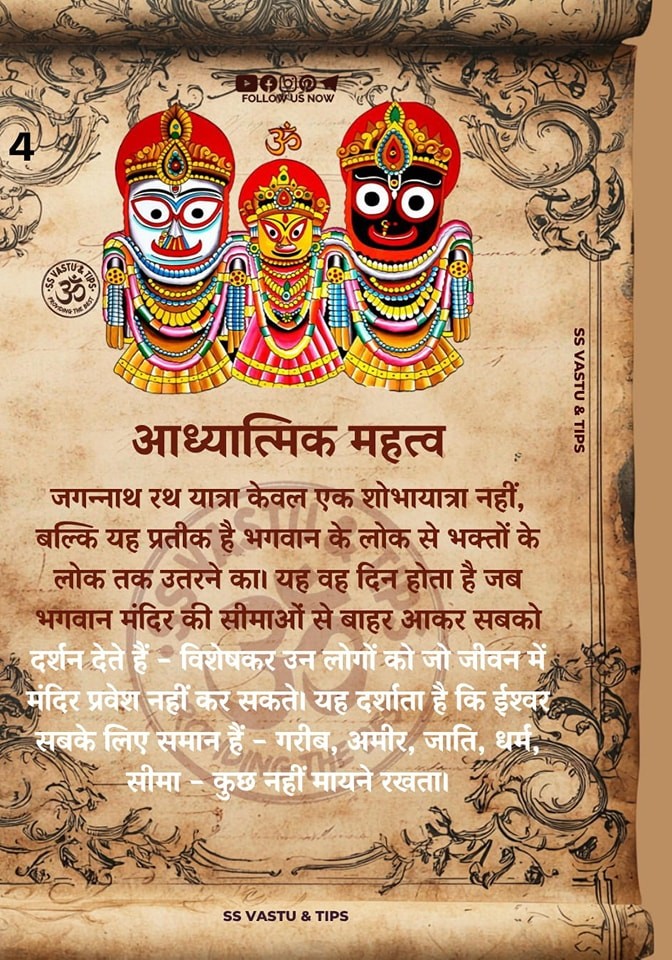 FOLLOW US NOW
4
ॐ
SS VASTU & TIPS
ॐ
PROVIDING THE BEST
SS VASTU & TIPS
आध्यात्मिक महत्व
जगन्नाथ रथ यात्रा केवल एक शोभायात्रा नहीं,
बल्कि यह प्रतीक है भगवान के लोक से भक्तों के
लोक तक उतरने का। यह वह दिन होता है जब
भगवान मंदिर की सीमाओं से बाहर आकर सबको
दर्शन देते हैं – विशेषकर उन लोगों को जो जीवन में
मंदिर प्रवेश नहीं कर सकते। यह दर्शाता है कि ईश्वर
सबके लिए समान हैं – गरीब, अमीर, जाति, धर्म,
सीमा – कुछ नहीं मायने रखता।
SS VASTU & TIPS